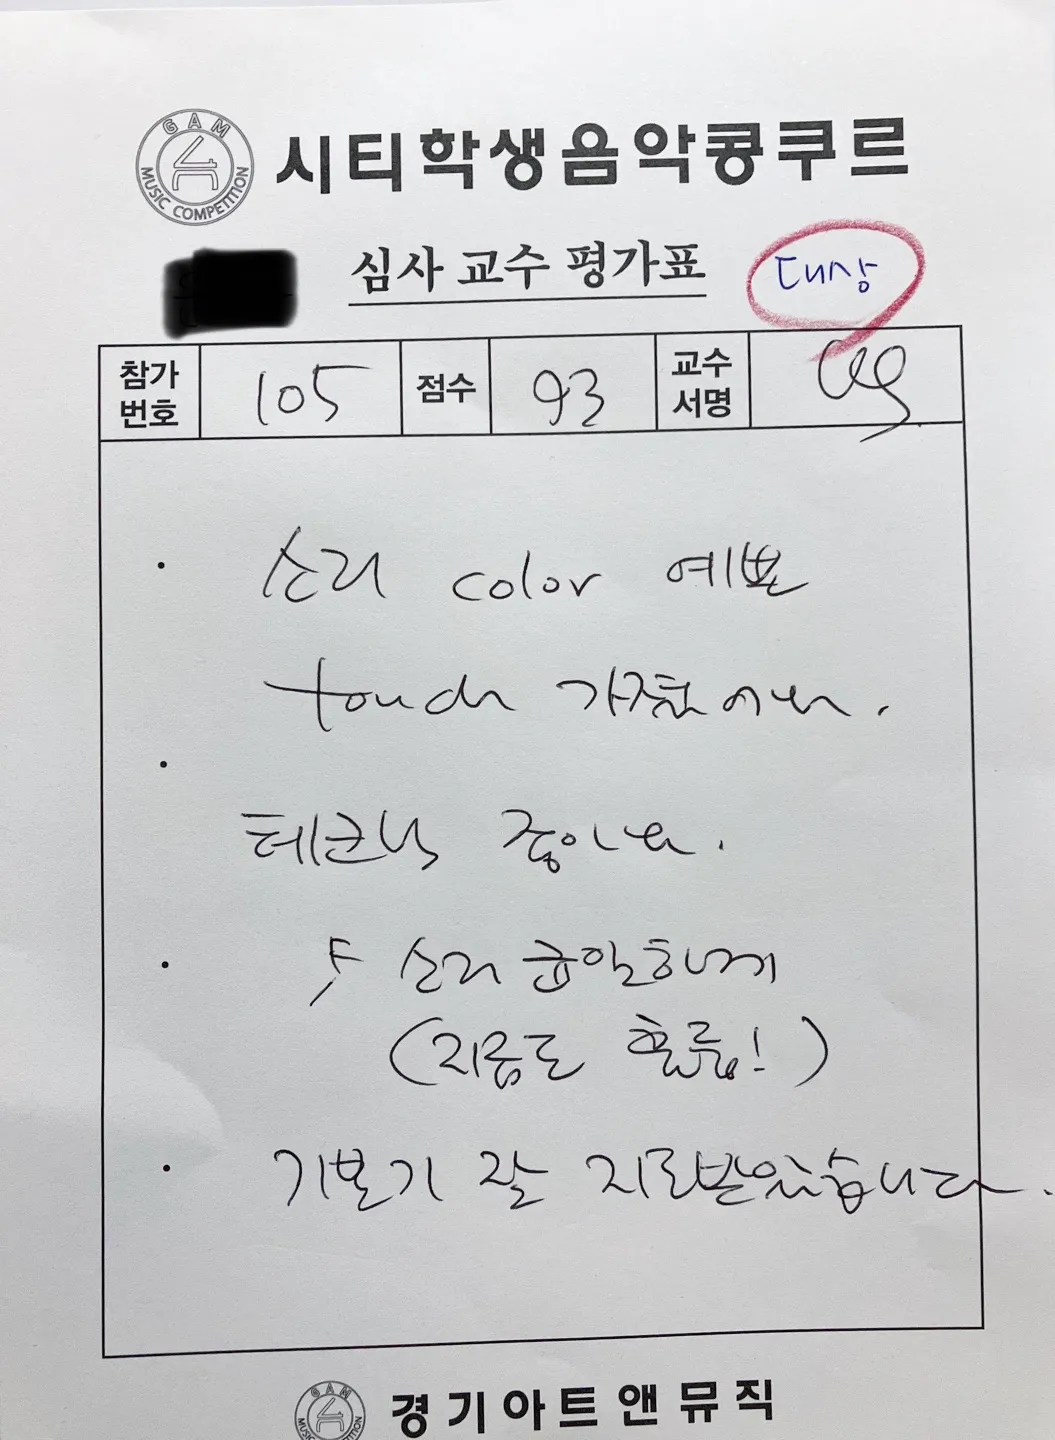 GAM
MUSIC COMPETITION
시티학생음악콩쿠르
심사 교수 평가표
대상
참가 번호 105 점수 93 교수 서명
· 소리 color 예쁜
touch 가졌어요.
·
테크닉 좋아요.
· 소리 균일하게
(지금도 훌륭!)
· 기본기 잘 지도받았습니다.
GAM
MUSIC COMPETITION
경기아트앤뮤직